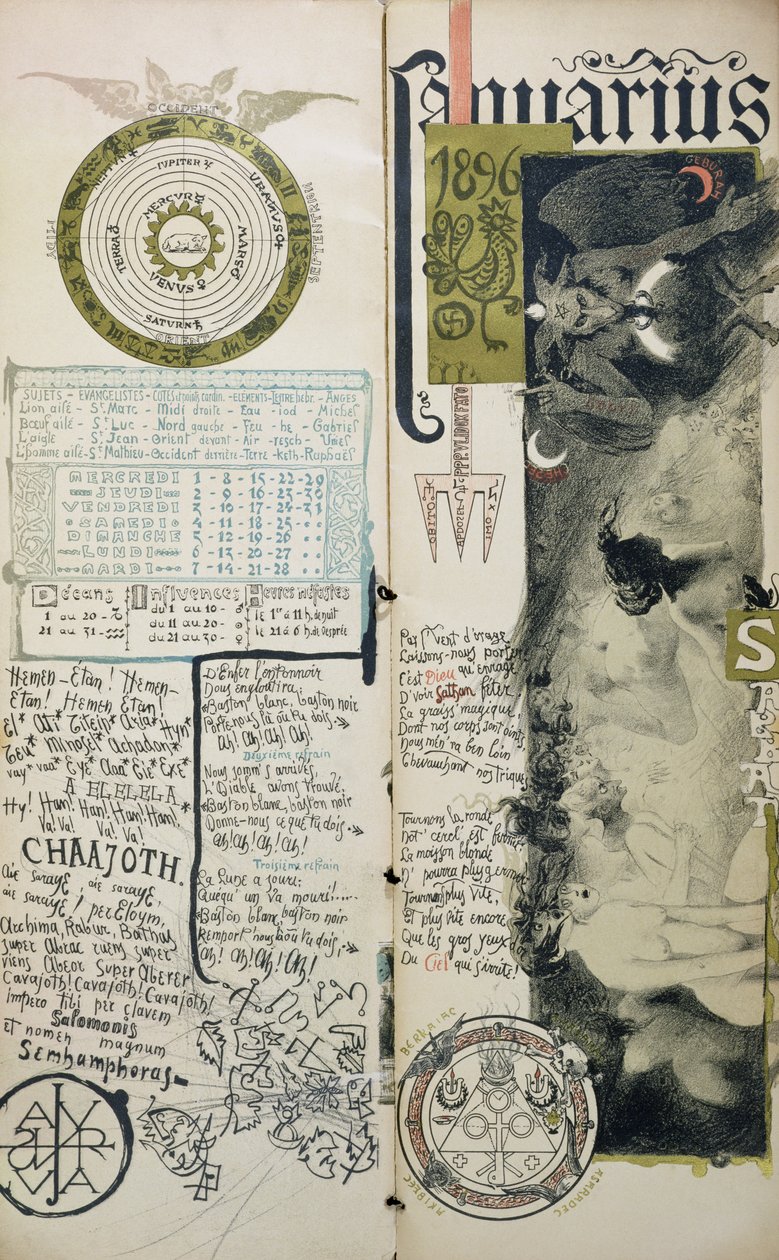 OCCIDENT
NEPTUNE
IUPITER ♃
URANUS
SEPTENTRION
MIDY
MERCUR ☿
TERRA
MARS
VENUS ♀
SATURN ♄
ORIENT
SUJETS - EVANGELISTES - COTES et points cardin. - ELEMENTS - LETTRE hebr. - ANGES
Lion ailé - St Marc - Midi droite - Eau - iod - Michel
Bœuf ailé - St Luc - Nord gauche - Feu - he - Gabriel
L'aigle - St Jean - Orient devant - Air - resch - Uriel
L'homme ailé - St Mathieu - Occident derrière - Terre - keth - Raphaël
MERCREDI 1 - 8 - 15 - 22 - 29
JEUDI 2 - 9 - 16 - 23 - 30
VENDREDI 3 - 10 - 17 - 24 - 31
SAMEDI 4 - 11 - 18 - 25
DIMANCHE 5 - 12 - 19 - 26
LUNDI 6 - 13 - 20 - 27
MARDI 7 - 14 - 21 - 28
Décans Influences Heures néfastes
1 au 20 - ♑ du 1 au 10 - ♂ le 1er à 11 h. de nuit
21 au 31 - ♒ du 11 au 20 - ☉ le 21 à 6 h. de vesprée
du 21 au 30 - ♀
Hemen-Étan! Hemen-
Étan! Hemen Étan!
El* Ati* Titeip* Aria* Hyn*
Teu* Minoset* Achadon*
vay* vaa* Eye* Aaa* Eie* Exe*
A ELELELA
Hy! Hau! Hau! Hau! Hau!
Va! Va! Va! Va!
CHAAJOTH.
Aie saraye, aie saraye,
aie saraye! per Eloym,
Archima, Rabur, Bathas
super Abrac ruens super
viens Abeor Super Aberer
Cavajoth! Cavajoth! Cavajoth!
impero tibi per clavem
Salomonis
et nomen magnum
Semhamphoras
D'Enfer l'entonnoir
Nous engloutira;
Baston blanc, baston noir
Porte nous là où tu dois
Ah! Ah! Ah! Ah!
Deuxième refrain
Nous somm's arrivés,
L'Diable avons trouvé,
Baston blanc, baston noir
Donne-nous ce que tu dois
Ah! Ah! Ah! Ah!
Troisième refrain
La Lune a souri;
Quéqu' un va mouri!....
Baston blanc, baston noir
Remport' nous là où tu dois,
Ah! Ah! Ah! Ah!
Januarius
1896
GEBURAH
CHESED
OBITO
SABBAT
Par l'Vent d'orage
Laissons-nous porter
C'est Dieu qu'enrage
D'voir Sathan fêter
La graiss' magique
Dont nos corps sont oints,
Nous mèn'ra ben loin
Chevauchant nos triques
Tournons la ronde
Not' cercl' est fermé
La moisson blonde
N' pourra plus germer
Tournons plus vite,
Et plus vite encore
Que les gros yeux d'or
Du Ciel qui s'irrite!
BERKAIAC
AKIBEEC
ASMARDEC